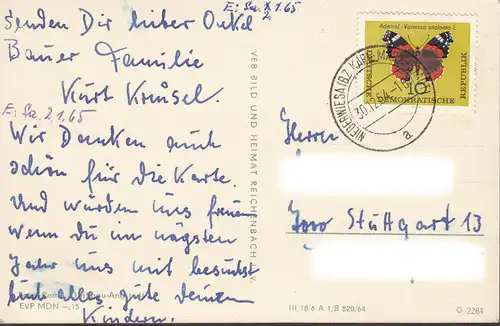 Senden Dir lieber Onkel
E: Sa. 2.1.65
2
Bauer Familie
Kurt Kreusel.
E: Sa 2.1.65
Wir Danken auch
schön für die Karte.
Und würden uns freuen
wenn du im nägsten
Jahr uns mit besuchst
Gute deinen
Kindern.
EVP MDN –.15
VEB BILD UND HEIMAT REICHENBACH I. V.
Admiral - Vanessa atalanta L.
DEUTSCHE DEMOKRATISCHE REPUBLIK
10
NIEDERWIESA (BZ KARL-MARX-
30.12.64
a
Herrn
Stuttgart 13
III 18/6 A 1/B 820/64
G 2284